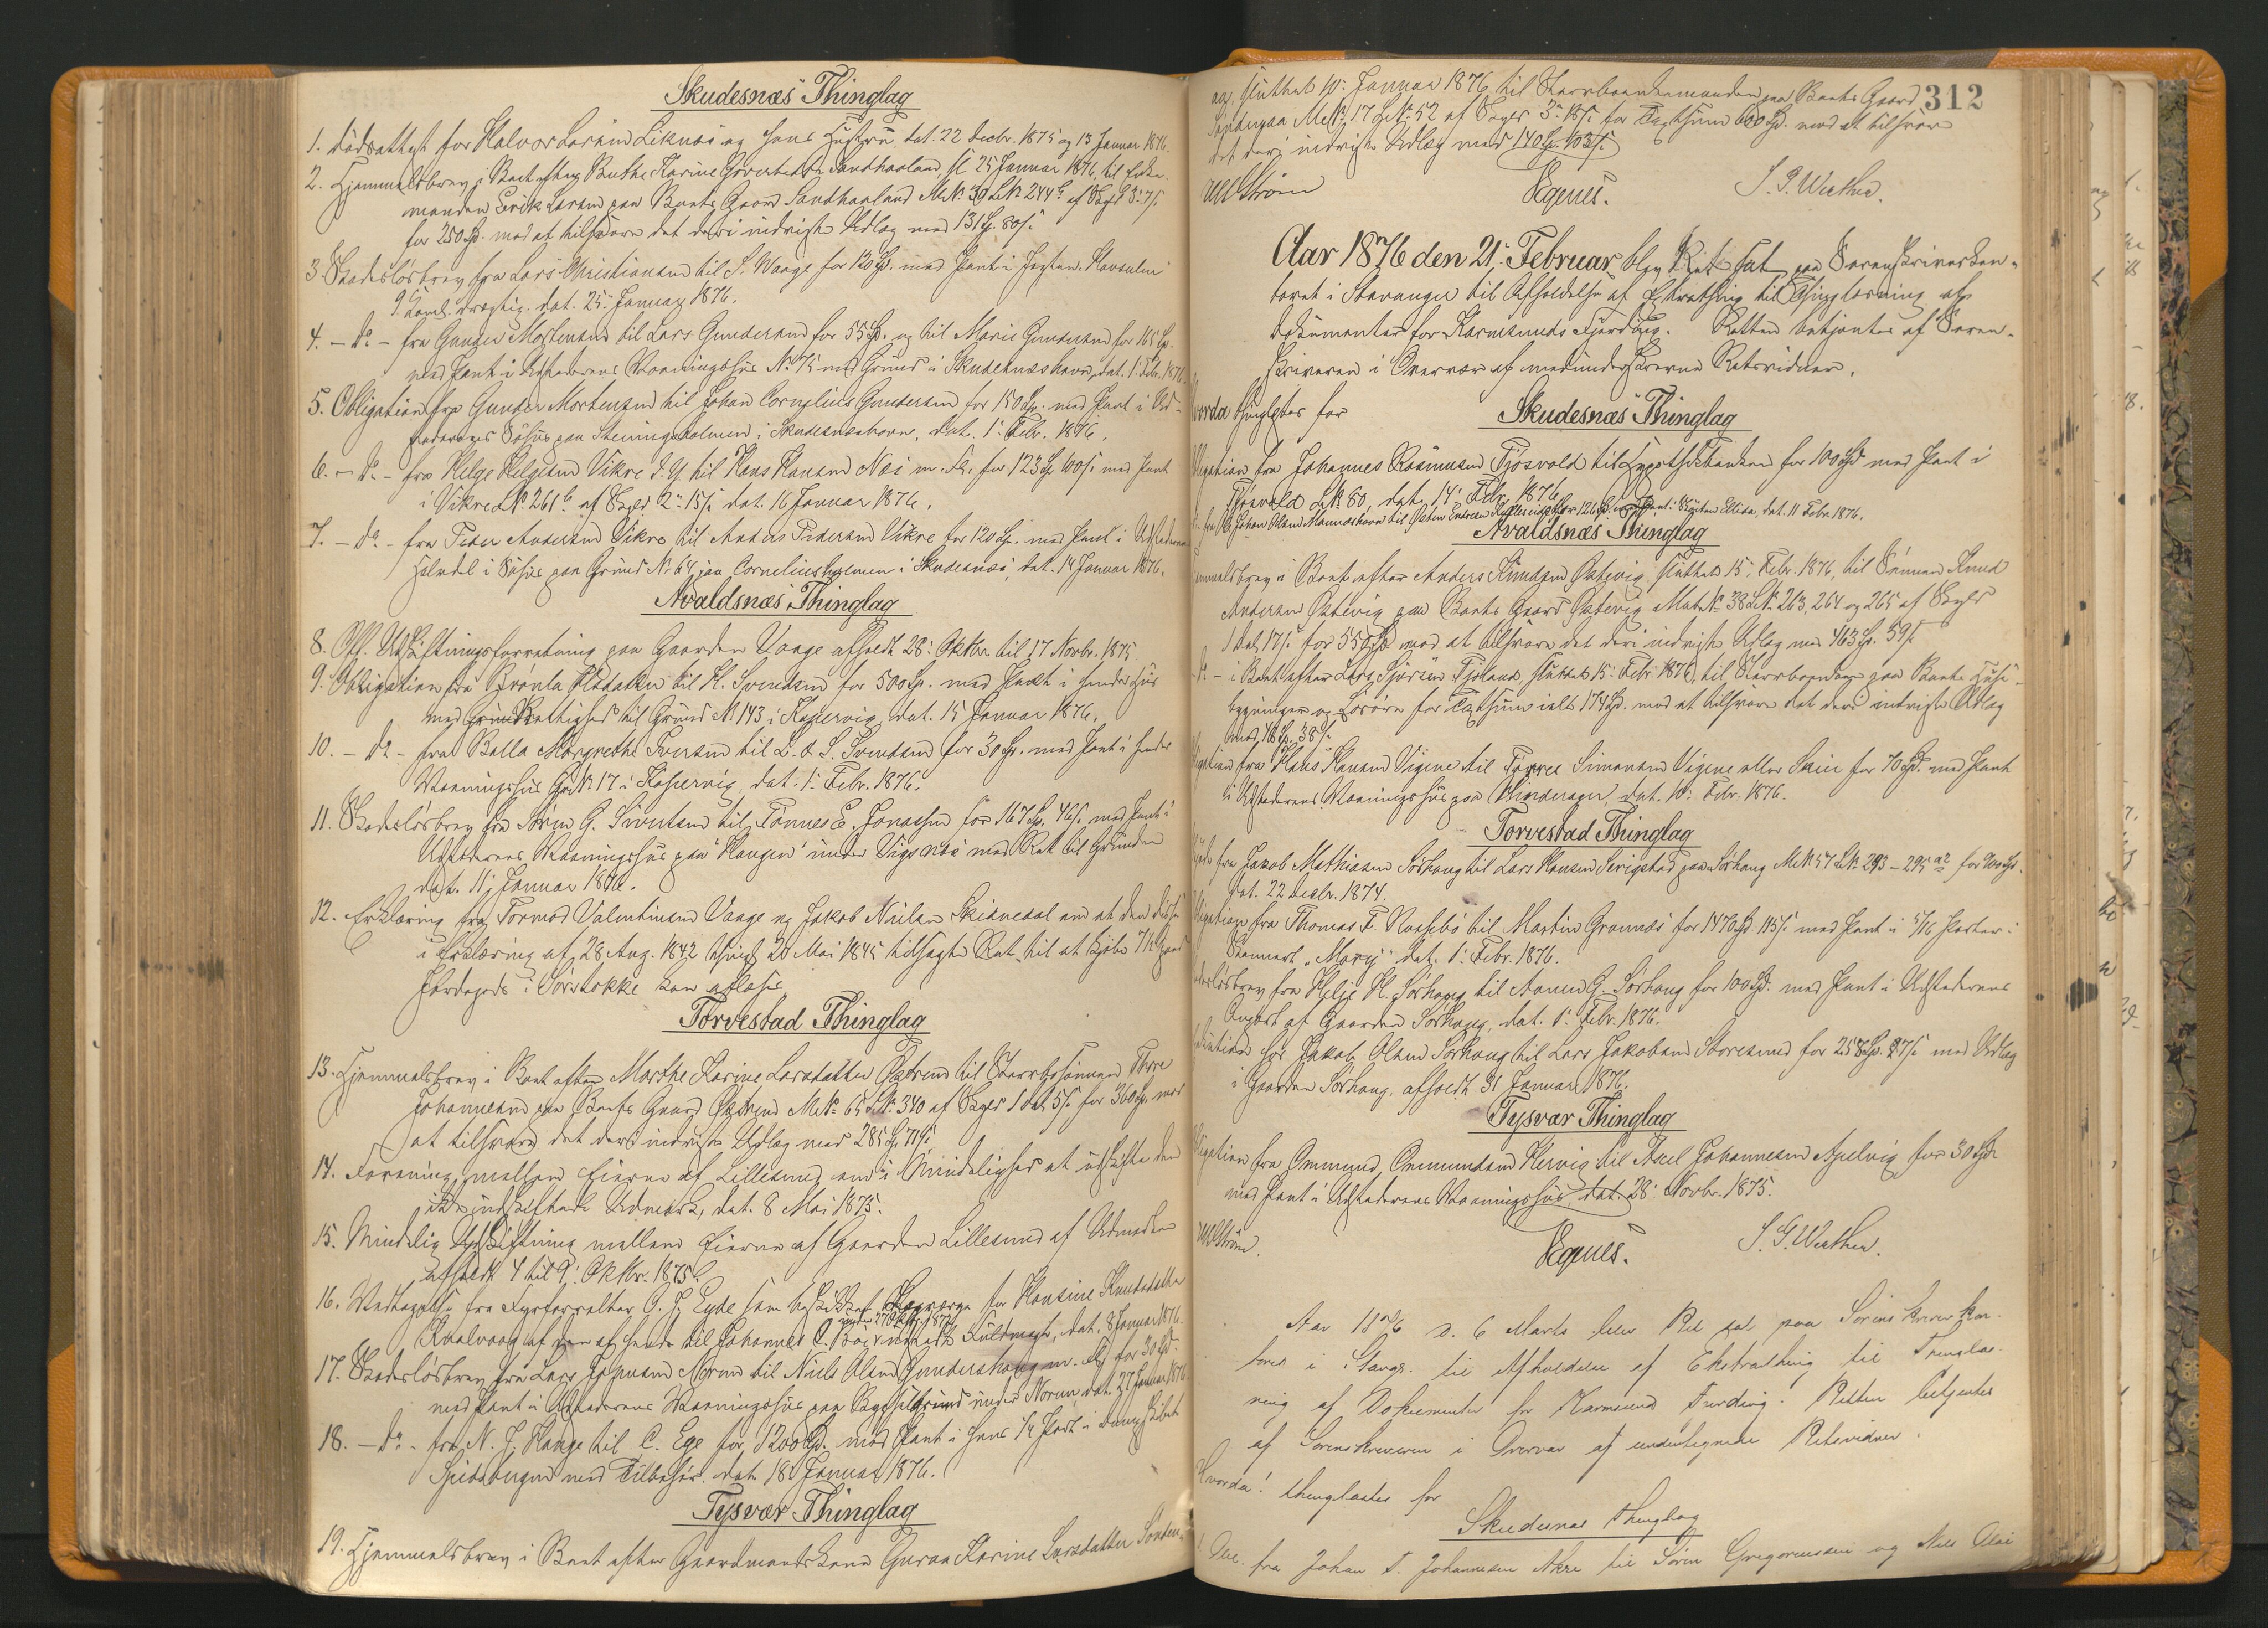 Skudesnæs Thinglag
1. Dödsattest for Halvor Larsen Liknæs og hans Hustru, dat. 22 Decbr. 1875 og 13 Januar 1876.
2. Hjemmelsbrev i Boet efter Berthe Karine Govertsdatter Sandhaaland, sl. 25 Januar 1876, til Enke-
manden Erik Larsen paa Boets Gaard Sandhaaland M.N. 39 L.N. 244 b af Skyld 3 - 7 s.
for 250 Sp. mod at tilsvare det deri indvirkte Udlæg med 131 Sp. 80 s.
3. Skadeslösbrev fra Lars Christiansen til S. Waage for 120 Sp. med Pant i Jagten
9 Coml. drægtig. dat. 25. Januar 1876.
4. - do - fra Gunder Mortensen til Lars Gundersen for 55 Sp. og til Marie Gundersen for 165 Sp.
med Pant i Udstederens Vaaningshus No 75 med Grund i Skudesnæshavn, dat. 1. Febr. 1876.
5. Obligation fra Gunder Mortensen til Johan Cornelius Gundersen for 150 Sp. med Pant i Ud-
stederens Söhus paa Steiningsholmen i Skudesnæshavn, dat. 1. Febr. 1876.
6. - do - fra Helge Helgesen Vikre d. y. til Hans Hansen Næs m. Fl. for 123 Sp. 60 s. med Pant
i Vikre L.N. 261 b af Skyld 2 - 15 s. dat. 16 Januar 1876.
7. - do - fra Peder Andersen Vikre til Anders Pedersen Vikre for 120 Sp. med Pant i Udstederens
Halvdel i Söhus paa Grund No 64 paa Corneliusholmen i Skudesnæs, dat. 14 Januar 1876.
Avaldsnæs Thinglag
8. Off. Udskiftningsforretning paa Gaarden Vaage afholdt 28. Oktbr. til 17 Novbr. 1875.
9. Obligation fra til H. Svendsen for 500 Sp. med Pant i hendes Hus
med Grundrettighed til Grund No 143 i Kopervig, dat. 15 Januar 1876.
10. - do - fra Bolla Margrethe Iversen til L. & S. Svendsen for 30 Sp. med Pant i hendes
Vaaningshus Gr.No 17 i Kopervig, dat. 1. Febr. 1876.
11. Skadeslösbrev fra Sören G. Sivertsen til Tönnes E. Jonassen for 167 Sp. 46 s. med Pant i
Udstederens Vaaningshus paa "Haugen" under Vigsnæs med Ret til Grunden
dat. 11. Januar 1876.
12. Erklæring fra Tormod Valentinsen Vaage og Jakob Nielsen Skidnedal om at den disse
i Erklæring af 28 Aug. 1842 thinglæst 20 Mai 1845 tilsagte Ret til at kjöbe
Jordegods i Sörstokke kan aflæses
Torvestad Thinglag
13. Hjemmelsbrev i Boet efter Marthe Karine Larsdatter Östrem til Stervbosönnen Thore
Johannesen paa Boets Gaard Östrem M.N. 65 L.N. 340 af Skyld 1 Dal. 5 s. for 360 Sp. mod
at tilsvare det deri indvirkte Udlæg med 285 Sp. 119 s.
14. Forening mellem Eierne af Lillesund om i Mindelighed at udskifte den
ikke udskiftede Udmark, dat. 8 Mai 1875.
15. Mindelig Udskiftning mellem Eierne af Gaarden Lillesund af Udmarken
afholdt 4 til 9. Oktbr. 1875.
16. Vedtagelse fra Fyrforvalter O. J. Eyde som beskikket Lagværge for Hansine Knudsdatter
Kvalvaag af den af hende til Johannes C. Bö under 27 1874 udstedte Fuldmagt, dat. 8 Januar 1876.
17. Skadeslösbrev fra Lars Johnsen Norem til Niels Olsen Gundershaug m. fl. for 30 Sp.
med Pant i Udstederens Vaaningshus paa Bygselgrund under Norem, dat. 27 Januar 1876.
18. - do - fra N. J. Hauge til C. Ege for 1200 Sp. med Pant i hans 1/4 Part i Dampskibet
Spidsbergen med Tilbehör. dat. 18 Januar 1876.
Tysvær Thinglag
19. Hjemmelsbrev i Boet efter Gaardmandskone Guroa Karine Larsdatter Sönden-
312
aa, sluttet 10. Januar 1876, til Stervboenkemanden paa Boets Gaard
Söndenaa M.No 17 L.No 52 af Skyld 3 - 18 s. for Taxtsum 600 Sp. mod at tilsvare
det deri indvirkte Udlæg med 140 Sp. 103 s.
Egenes.
S. G. Wiether.
Aar 1876 den 21. Februar blev Ret sat paa Sorenskriverkon-
toret i Stavanger til Afholdelse af Extrathing til Thinglæsning af
Dokumenter for Karmsunds Fjerding. Retten betjentes af Soren-
skriveren i Overvær af medunderskrevne Retsvidner.
Hvorda thinglæstes for
Skudesnæs Thinglag
Obligation fra Johannes Rasmussen Tjösvold til Hypothekbanken for 100 Spd. med Pant i
Tjösvold L.N. 80, dat. 14. Febr. 1876.
fra Johan Olsen Mannæshavn til for 126 Sp. med Pant i Skjöten Ellida, dat. 11 Febr. 1876.
Avaldsnæs Thinglag
Hjemmelsbrev i Boet efter Anders Knudsen Östevig, sluttet 15. Febr. 1876, til Sönnen Knud
Andersen Östevig paa Boets Gaard Östevig Matr.N. 38 L.N. 263, 264 og 265 af Skyld
1 Dal. 17 s. for 550 Sp. mod at tilsvare det deri indvirkte Udlæg med 463 Sp. 59 s.
do - i Boet efter Lars Sjursen Fosland, sluttet 15. Febr. 1876, til Stervboenken paa Boets Huse
bygninger og Lösöre for Taxtsum ialt 174 Sp. mod at tilsvare det deri indvirkte Udlæg
med, 16 Sp. 38 s.
Obligation fra Hans Hansen Vigene til Torres Simonsen Vigene eller Skeie for 70 Sp. med Pant
i Udstederens Vaaningshus paa, dat. 10. Febr. 1876.
Torvestad Thinglag
Skjöde fra Jacob Mathiasen Sörhaug til Lars Hansen Sevigstad paa Sörhaug M.N. 57 L.N. 293 - 295 a2 for
dat. 22 Decbr. 1874.
Obligation fra Thomas T. Nassebö til Martin Grønnæs for 1470 Sp. 115 s. med Pant i 5/16 Parter i
Skonnert "Mary" dat. 1. Febr. 1876.
Skadeslösbrev fra Helje H. Sörhaug til Aanen G. Sörhaug for 100 Sp. med Pant i Udstederens
Anpart af Gaarden Sörhaug, dat. 1. Febr. 1876.
Exekution for Jakob Olsen Sörhaug til Lars Jakobsen Storesund for 258 Sp. 27 s. med Udlæg
i Gaarden Sörhaug, afholdt 31 Januar 1876.
Tysvær Thinglag
Obligation fra Ommund Ommundsen Hervig til Axel Johannesen Apelvig for 30 Sp.
med Pant i Udstederens Vaaningshus, dat. 28. Novbr. 1875.
Egenes.
S. G. Wiether.
Aar 1876 d. 6 Marts blev Ret sat paa Sorenskriverkon-
toret i Stavgr. til Afholdelse af Ekstrathing til Tinglæs-
ning af Dokumenter for Karmsund Fjerding. Retten betjentes
af Sorenskriveren i Overvær af undertegnede Retsvidner.
Hvorda! thinglæstes for
Skudesnæs Thinglag
fra Johan T. Johannesen Akre til Sören Gregoriussen og Nils Olai